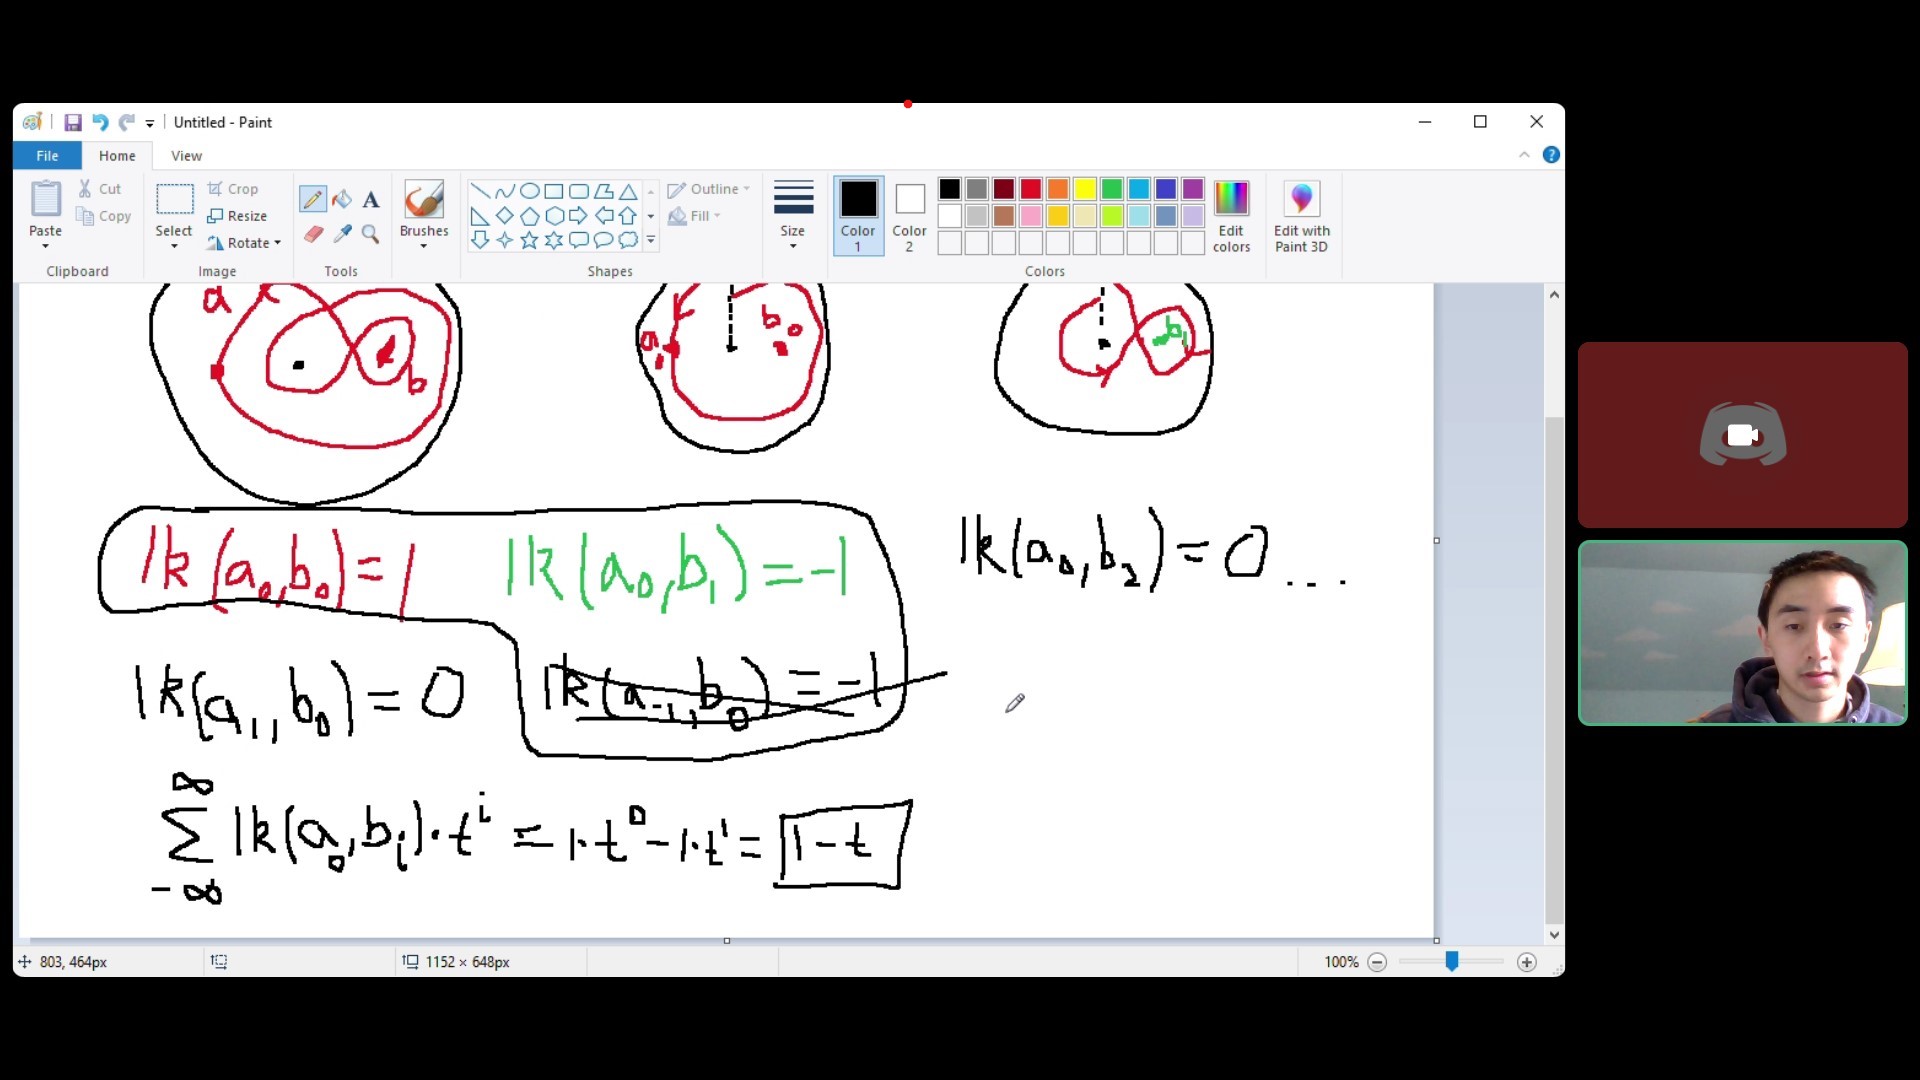 Untitled - Paint
File Home View
Paste
Cut
Copy
Clipboard
Select
Crop
Resize
Rotate
Image
Tools
Brushes
Shapes
Outline
Fill
Size
Color 1
Color 2
Colors
Edit colors
Edit with Paint 3D
a
b
a₁
b₀
b₁
lk(a₀,b₀)=1 lk(a₀,b₁)=-1 lk(a₀,b₂)=0...
lk(a₁,b₀)=0 lk(a₋₁,b₀)=-1
∞
∑ lk(a₀,b_i)·t^i = 1·t⁰-1·t¹= 1-t
-∞
803, 464px
1152 × 648px
100%